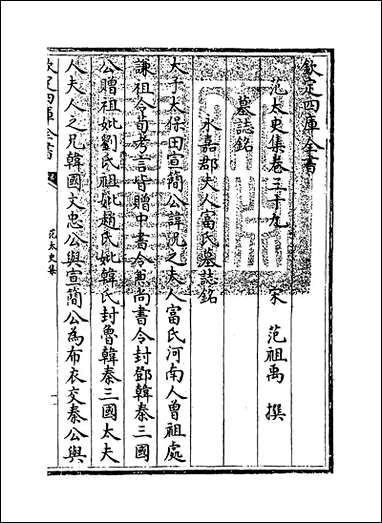 欽定四庫全書
范太史集卷三十九　宋　范祖禹　撰
墓誌銘
永嘉郡夫人富氏墓誌銘
太子太保田宣簡公諱況之夫人富氏河南人曾祖處
謙祖令荀考言皆贈中書令兼尚書令封鄧韓秦三國
公贈祖妣劉氏祖妣趙氏妣韓氏封魯韓秦三國太夫
人夫人之兄韓國文忠公與宣簡公為布衣交秦公與
欽定四庫全書
范太史集